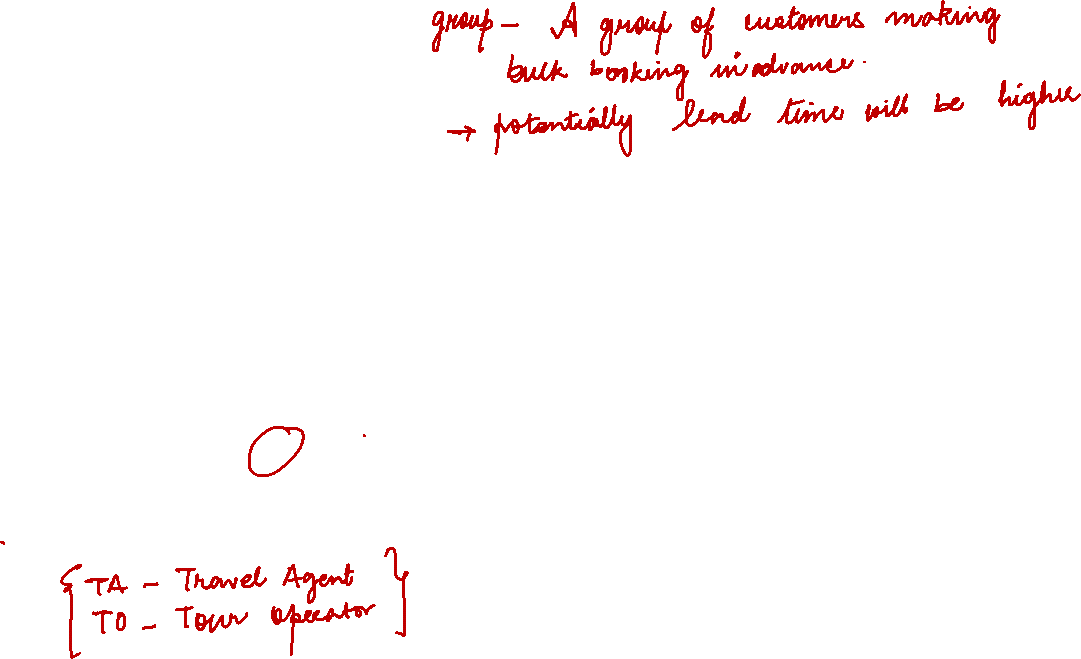 group - A group of customers making
bulk booking in advance.
→ potentially lead time will be higher
TA - Travel Agent
TO - Tour Operator